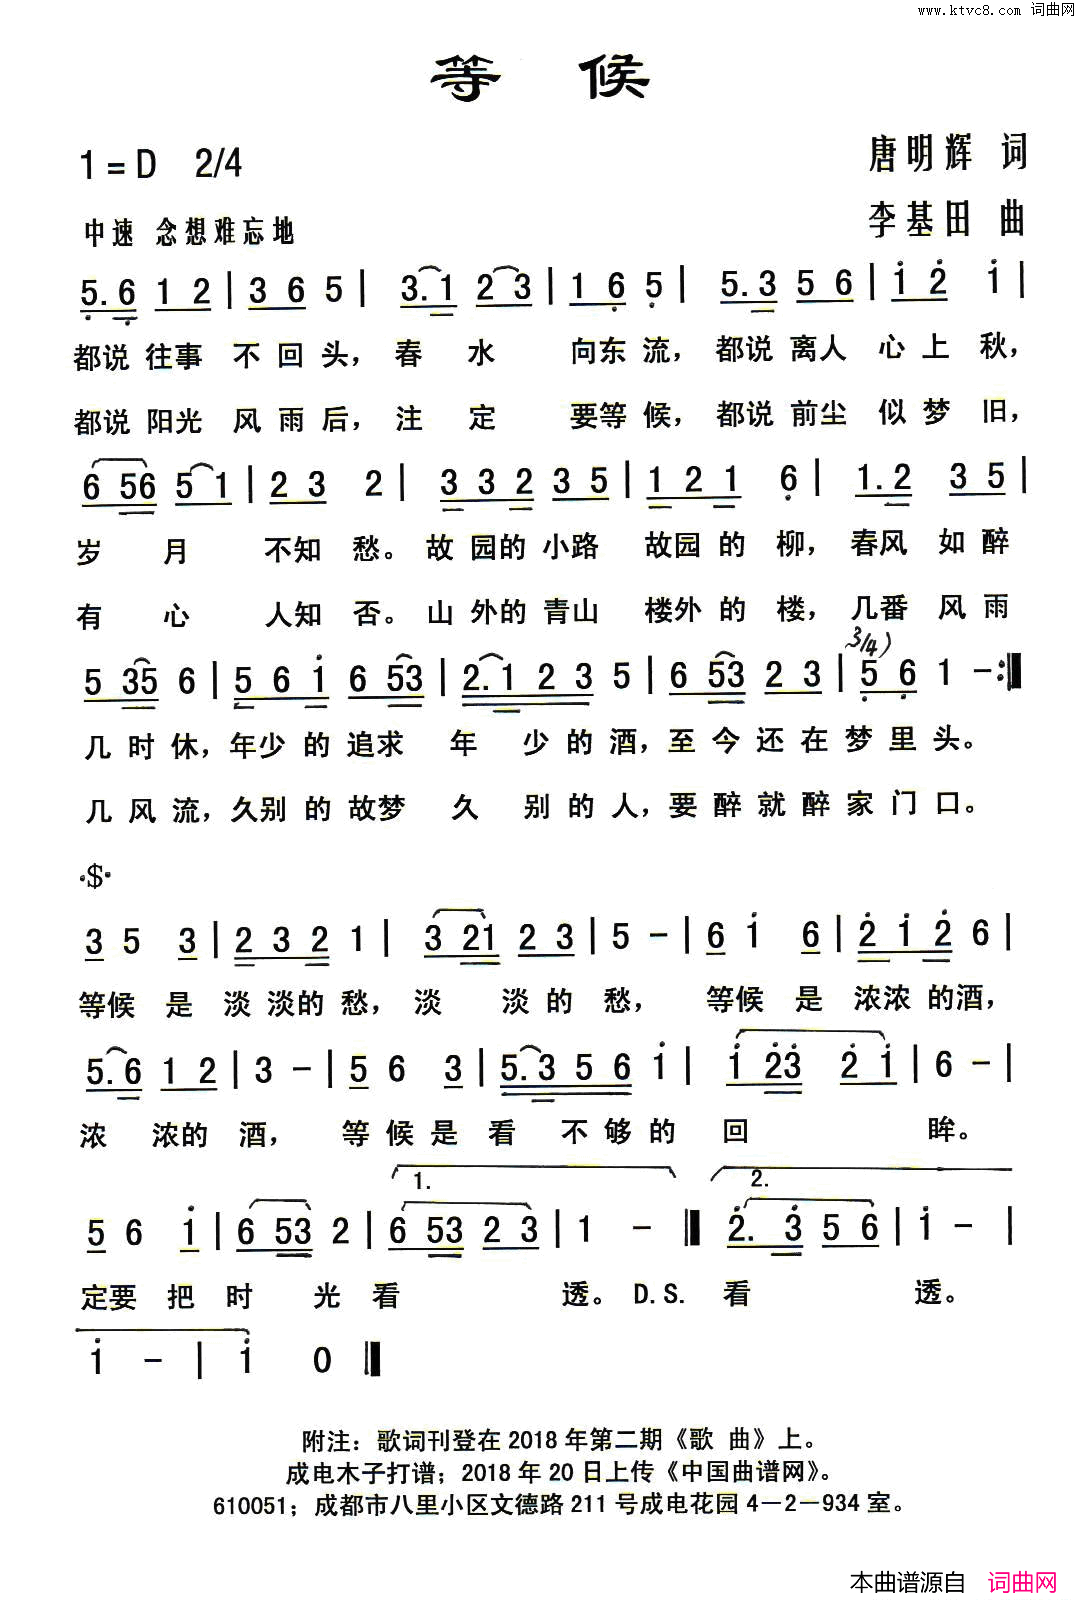 www.ktvc8.com 词曲网
等 候
1=D 2/4
唐明辉 词
中速 念想难忘地
李基田 曲
5.6 1 2 | 3 6 5 | 3.1 2 3 | 1 6 5 | 5.3 5 6 | 1 2 1 |
都说 往事 不 回 头， 春 水 向东 流， 都说 离人 心 上 秋，
都说 阳光 风 雨 后， 注 定 要等 候， 都说 前尘 似 梦 旧，
6 56 5 1 | 2 3 2 | 3 3 2 3 5 | 1 2 1 6 | 1.2 3 5 |
岁 月 不知 愁。 故 园的 小路 故园 的 柳， 春风 如 醉
有 心 人知 否。 山 外的 青山 楼外 的 楼， 几番 风 雨
3/4)
5 35 6 | 5 6 1 6 53 | 2.1 2 3 5 | 6 53 2 3 | 5 6 1 - :||
几 时 休，年少 的 追求 年 少 的 酒，至 今 还 在 梦 里 头。
几 风 流，久别 的 故梦 久 别 的 人，要 醉 就 醉 家 门 口。
·$·
3 5 3 | 2 3 2 1 | 3 21 2 3 | 5 - | 6 1 6 | 2 1 2 6 |
等候 是 淡 淡的 愁，淡 淡 的 愁， 等候 是 浓浓 的酒，
5.6 1 2 | 3 - | 5 6 3 | 5.3 5 6 1 | 1 23 2 1 | 6 - |
浓 浓的 酒， 等 候 是 看 不 够 的 回 眸。
1. 2.
5 6 1 | 6 53 2 | 6 53 2 3 | 1 - || 2. 3 5 6 | 1 - |
定要 把 时 光 看 透。 D.S. 看 透。
1 - | 1 0 ||
附注：歌词刊登在 2018 年第二期《歌 曲》上。
成电木子打谱；2018 年 20 日上传《中国曲谱网》。
610051；成都市八里小区文德路 211 号成电花园 4－2－934 室。
本曲谱源自 词曲网